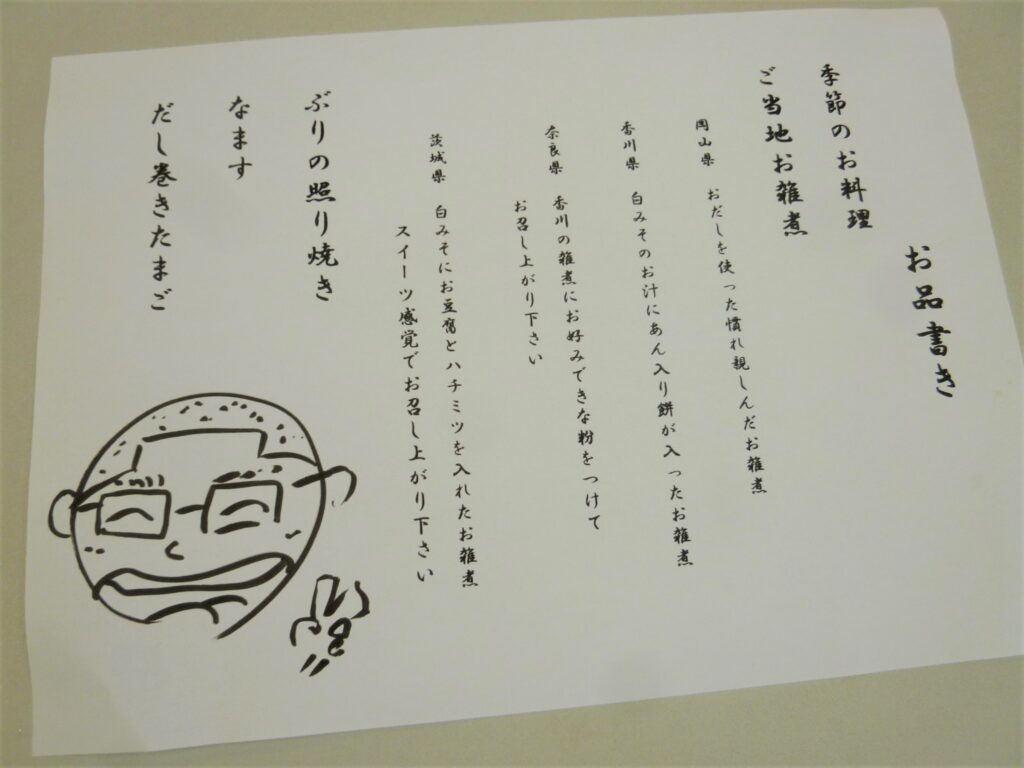 お品書き
季節のお料理
ご当地お雑煮
岡山県 おだしを使った慣れ親しんだお雑煮
香川県 白みそのお汁にあん入り餅が入ったお雑煮
奈良県 香川の雑煮にお好みできな粉をつけて
お召し上がり下さい
茨城県 白みそにお豆腐とハチミツを入れたお雑煮
スイーツ感覚でお召し上がり下さい
ぶりの照り焼き
なます
だし巻きたまご